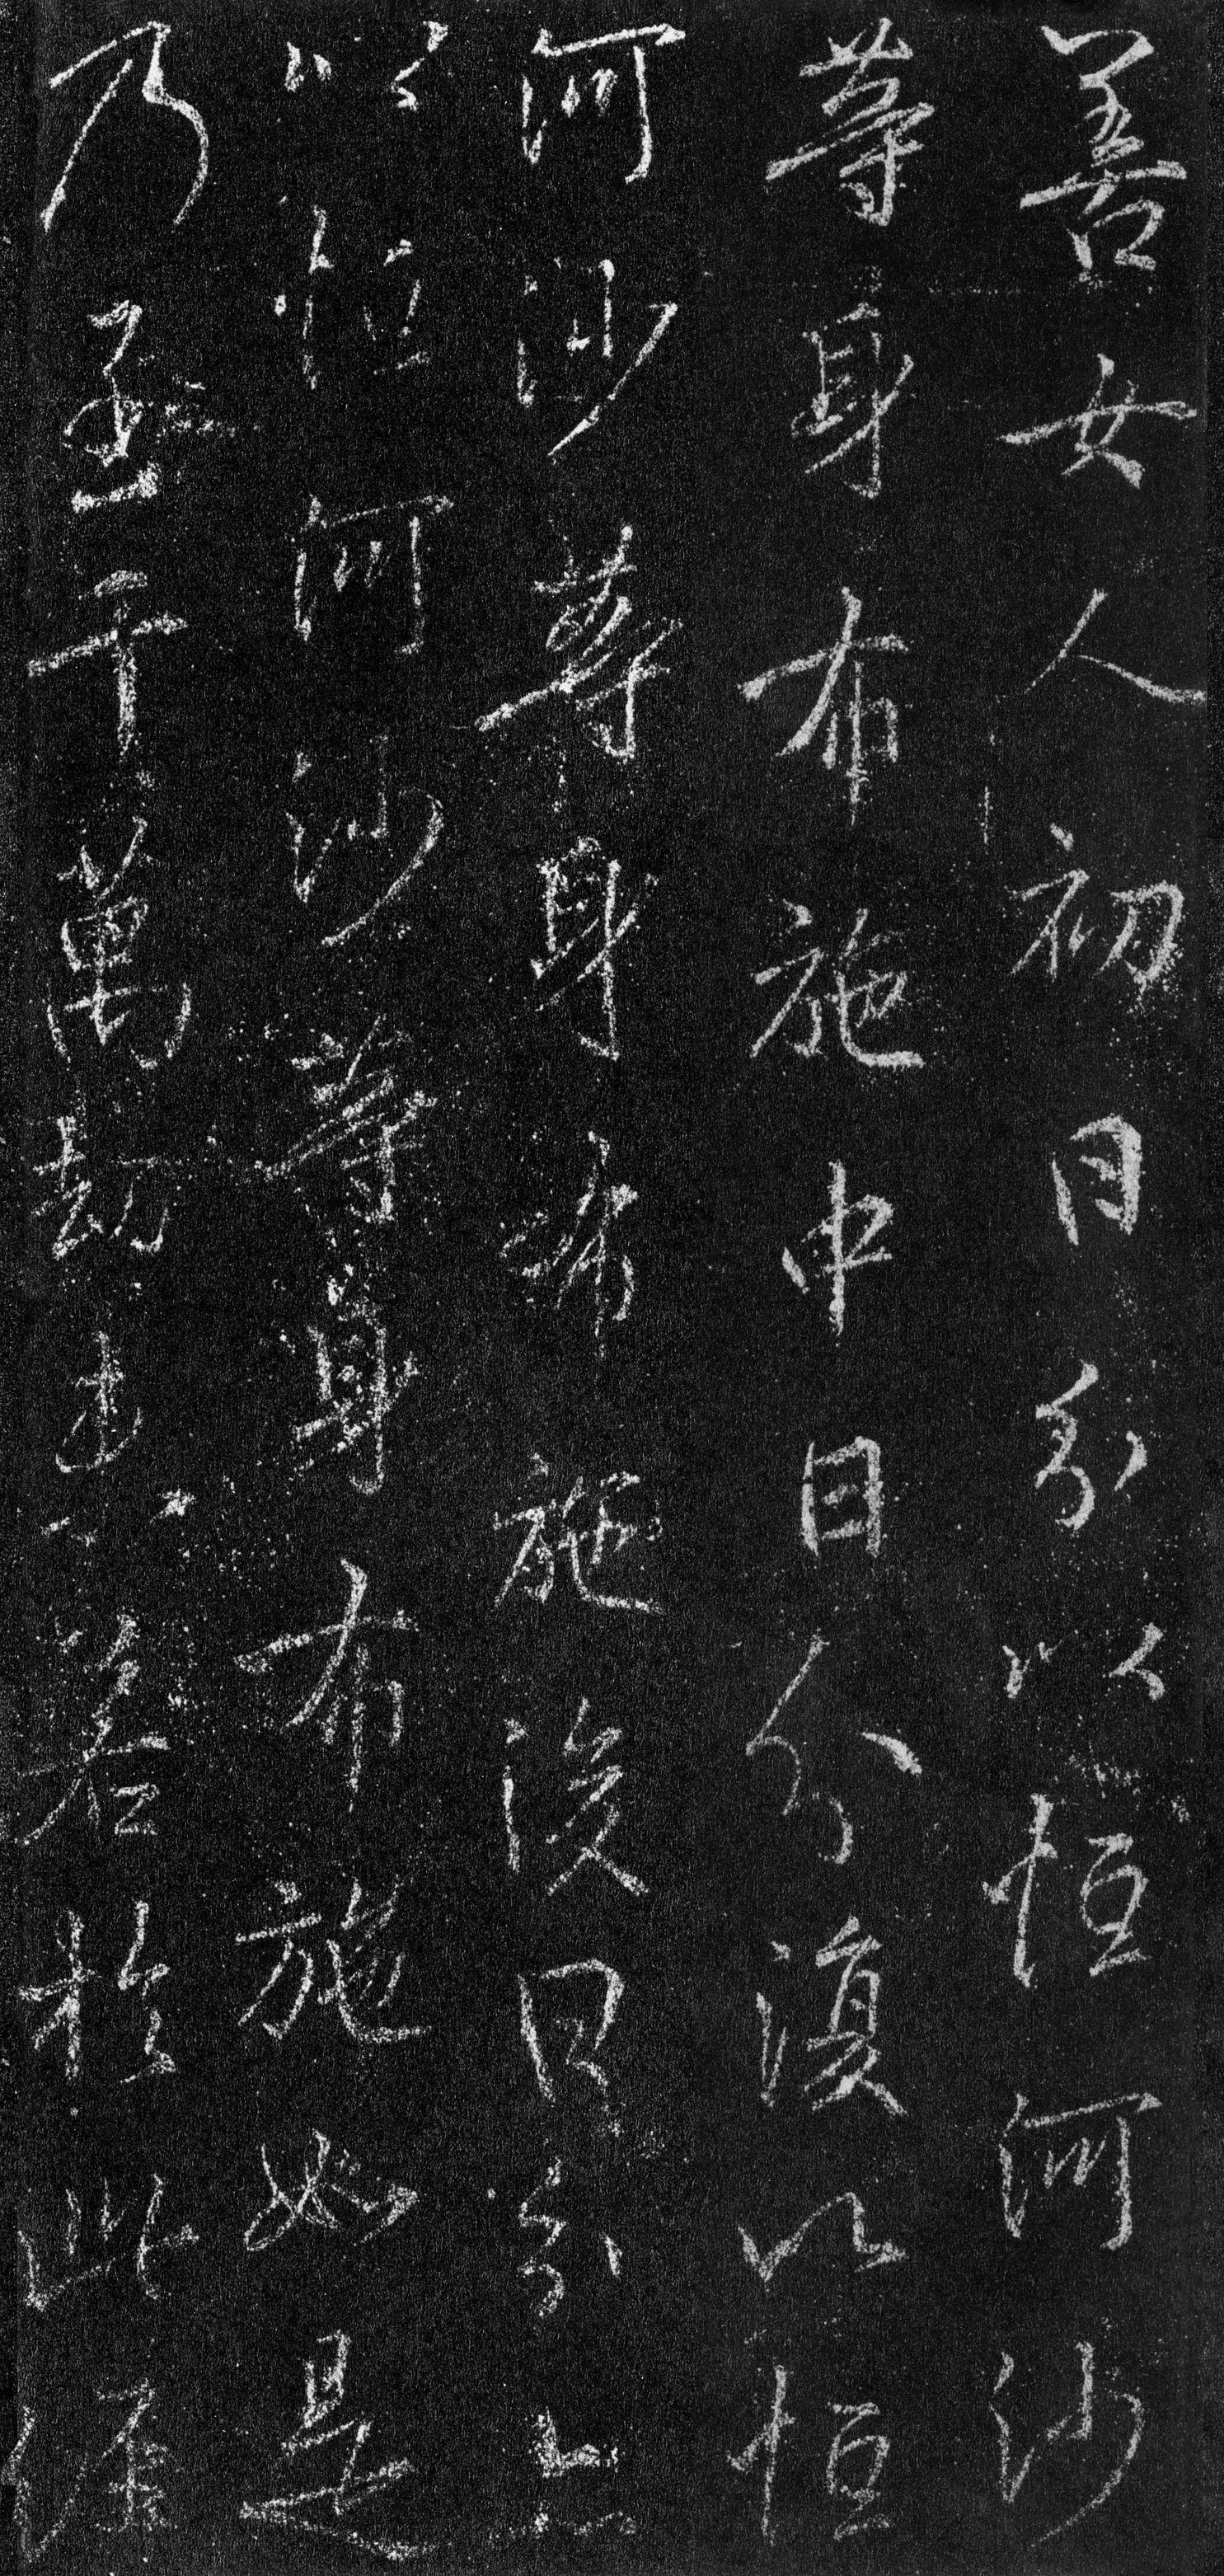 善女人初日分以恒河沙
等身布施中日分復以恒
河沙等身布施後日分亦
以恒河沙等身布施如是
乃至千萬劫也若於此経